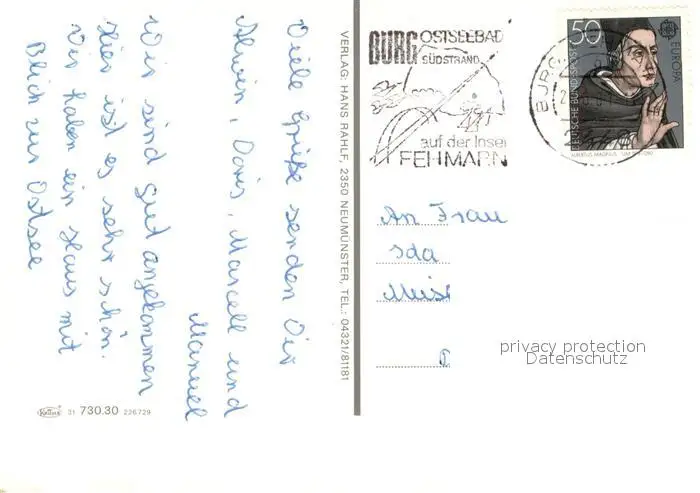 Viele Grüße senden Dir
Alwin, Doris, Marcell und
Manuel
Wir sind gut angekommen
Hier ist es sehr schön.
Wir haben ein Haus mit
Blick zur Ostsee
VERLAG: HANS RAHLF, 2350 NEUMÜNSTER, TEL.: 04321/81181
Krüger 31 730.30 226729
BURG OSTSEEBAD
SÜDSTRAND
auf der Insel
FEHMARN
BURG
50
EUROPA
DEUTSCHE BUNDESPOST
ALBERTUS MAGNUS
An Frau
Ida
privacy protection
Datenschutz